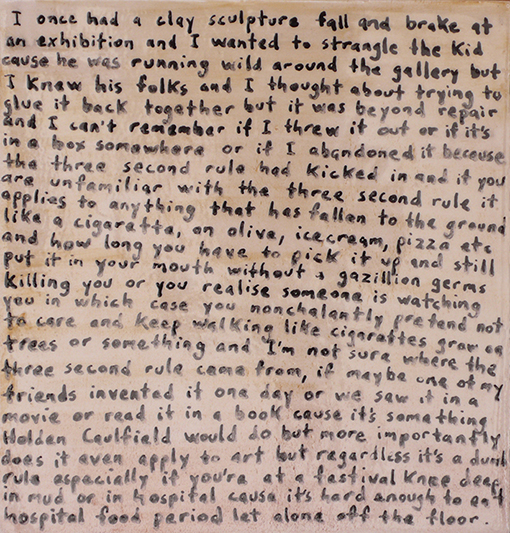 I once had a clay sculpture fall and brake at
an exhibition and I wanted to strangle the kid
cause he was running wild around the gallery but
I knew his folks and I thought about trying to
glue it back together but it was beyond repair
and I can't remember if I threw it out or if it's
in a box somewhere or if I abandoned it because
the three second rule had kicked in and if you
are unfamiliar with the three second rule it
applies to anything that has fallen to the ground
like a cigaretta, an olive, icecream, pizza etc
and how long you have to pick it up and still
put it in your mouth without a gazillion germs
killing you or you realise someone is watching
you in which case you nonchalantly pretend not
to care and keep walking like cigarettes grow on
trees or something and I'm not sure where the
three second rule came from, if maybe one of my
friends invented it one day or we saw it in a
movie or read it in a book cause it's something
Holden Caulfield would do but more importantly
does it even apply to art but regardless it's a dumb
rule especially if you're at a festival knee deep
in mud or in hospital cause it's hard enough to eat
hospital food period let alone off the floor.